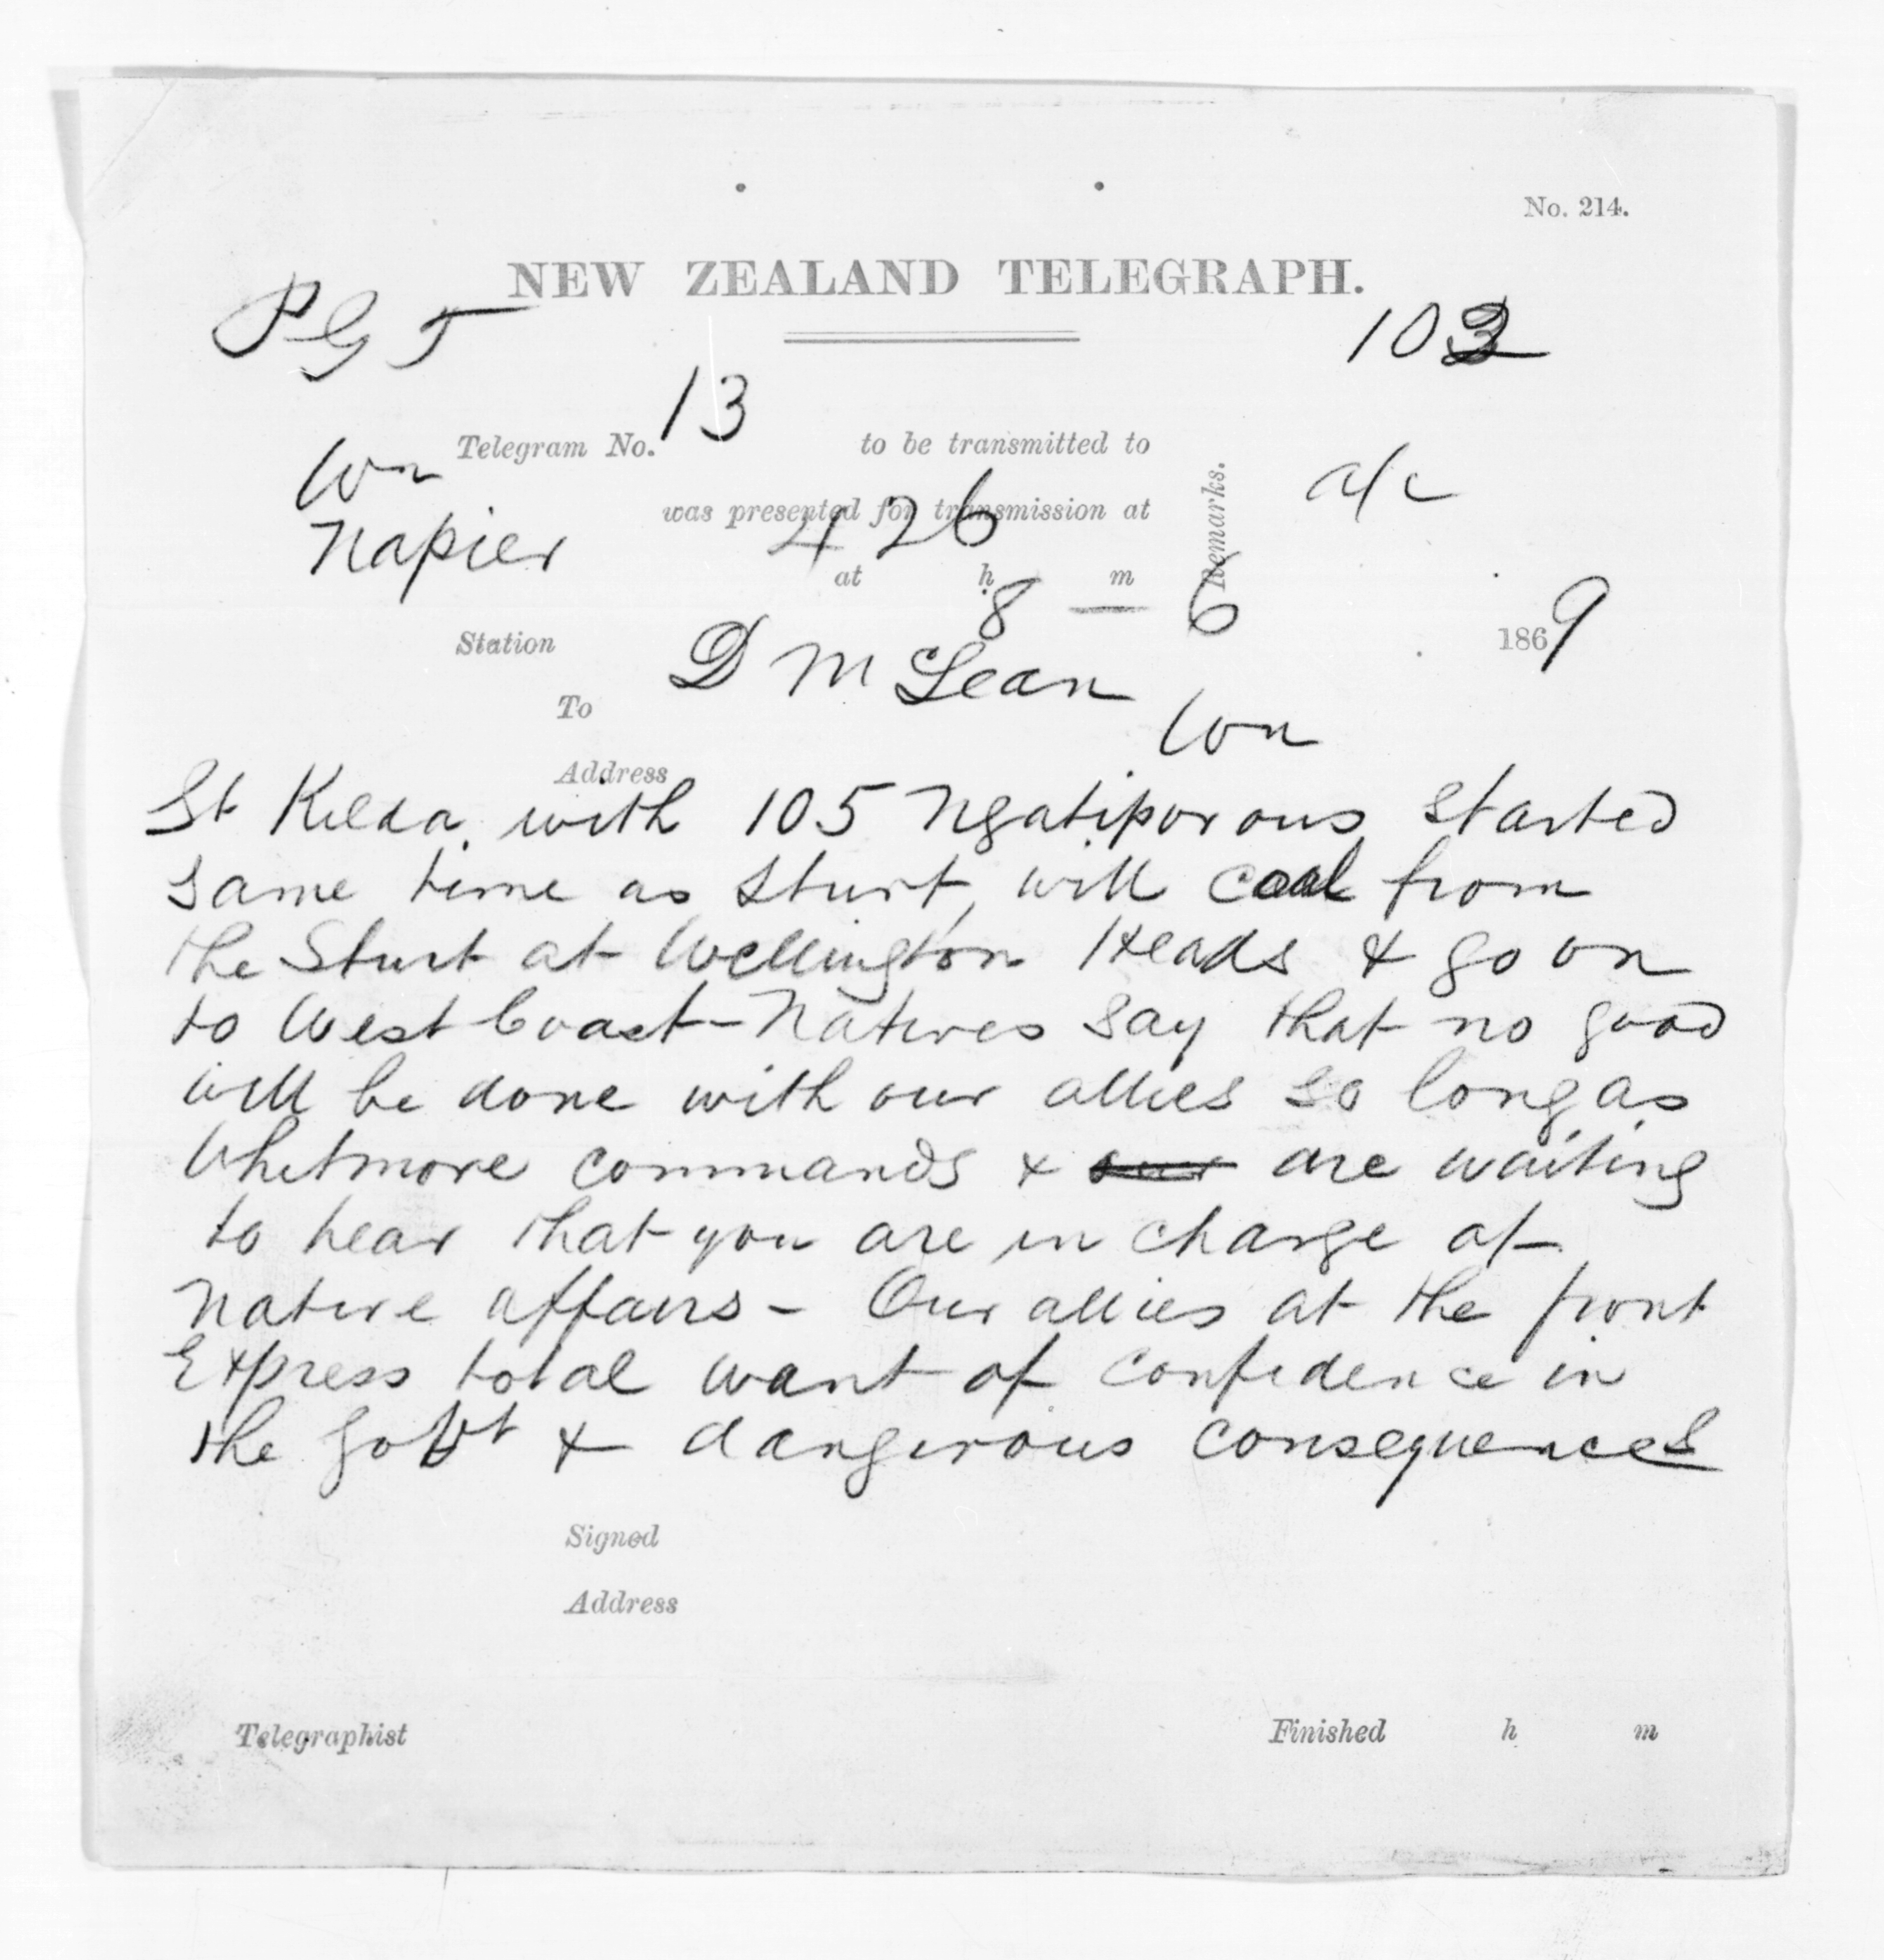 No. 214.
NEW ZEALAND TELEGRAPH.
P G T
103
13
Telegram No. to be transmitted to
Wn
a/c
was presented for transmission at
Remarks.
Napier
4 26
at h m
8 — 6
1869
Station
D McLean
To
Wn
Address
St Kilda with 105 Ngatiporous started
same time as Sturt, will coal from
the Sturt at Wellington Heads & go on
to West Coast - Natives say that no good
will be done with our allies so long as
Whitmore commands & our are waiting
to hear that you are in charge of
Native affairs - Our allies at the front
Express total want of confidence in
the Govt & dangerous consequences
Signed
Address
Telegraphist Finished h m